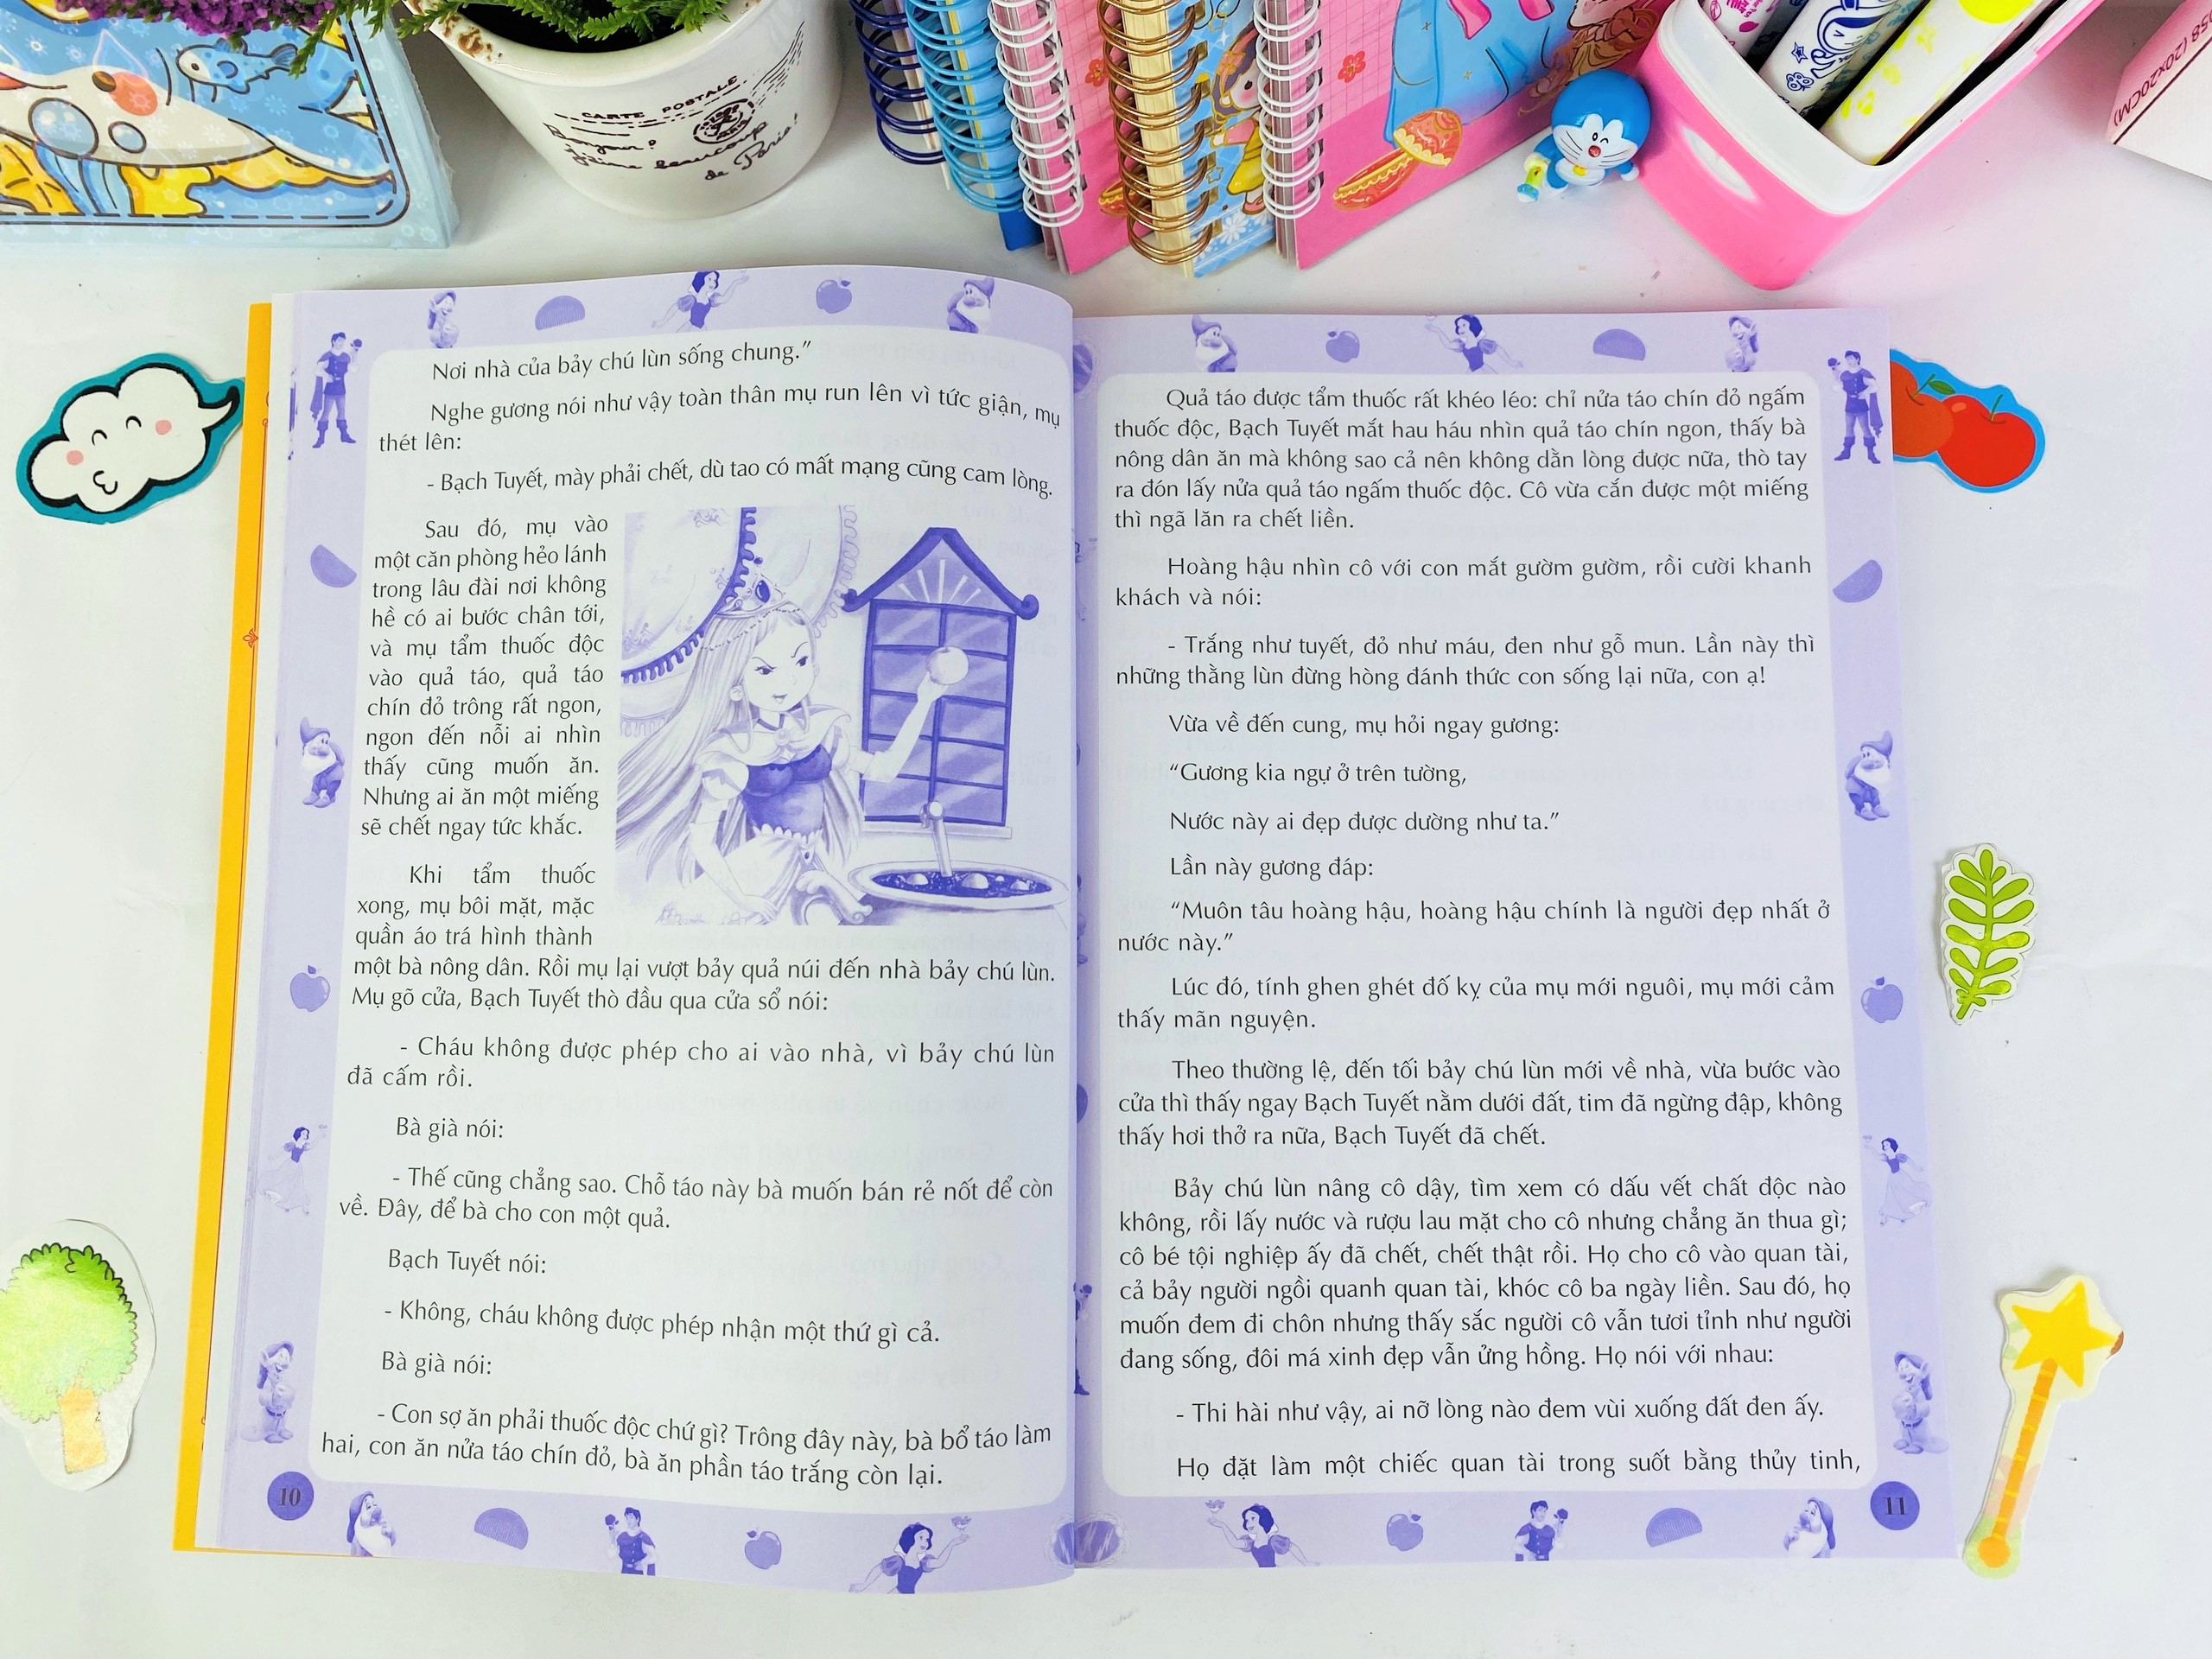 CARTE POSTALE
Bonjour?
J'aime beaucoup
de Paris!
58 (20x20CM)
Nơi nhà của bảy chú lùn sống chung.”
Nghe gương nói như vậy toàn thân mụ run lên vì tức giận, mụ
thét lên:
- Bạch Tuyết, mày phải chết, dù tao có mất mạng cũng cam lòng.
Sau đó, mụ vào
một căn phòng hẻo lánh
trong lâu đài nơi không
hề có ai bước chân tới,
và mụ tẩm thuốc độc
vào quả táo, quả táo
chín đỏ trông rất ngon,
ngon đến nỗi ai nhìn
thấy cũng muốn ăn.
Nhưng ai ăn một miếng
sẽ chết ngay tức khắc.
Khi tẩm thuốc
xong, mụ bôi mặt, mặc
quần áo trá hình thành
một bà nông dân. Rồi mụ lại vượt bảy quả núi đến nhà bảy chú lùn.
Mụ gõ cửa, Bạch Tuyết thò đầu qua cửa sổ nói:
- Cháu không được phép cho ai vào nhà, vì bảy chú lùn
đã cấm rồi.
Bà già nói:
- Thế cũng chẳng sao. Chỗ táo này bà muốn bán rẻ nốt để còn
về. Đây, để bà cho con một quả.
Bạch Tuyết nói:
- Không, cháu không được phép nhận một thứ gì cả.
Bà già nói:
- Con sợ ăn phải thuốc độc chứ gì? Trông đây này, bà bổ táo làm
hai, con ăn nửa táo chín đỏ, bà ăn phần táo trắng còn lại.
10
Quả táo được tẩm thuốc rất khéo léo: chỉ nửa táo chín đỏ ngấm
thuốc độc, Bạch Tuyết mắt hau háu nhìn quả táo chín ngon, thấy bà
nông dân ăn mà không sao cả nên không dằn lòng được nữa, thò tay
ra đón lấy nửa quả táo ngấm thuốc độc. Cô vừa cắn được một miếng
thì ngã lăn ra chết liền.
Hoàng hậu nhìn cô với con mắt gườm gườm, rồi cười khanh
khách và nói:
- Trắng như tuyết, đỏ như máu, đen như gỗ mun. Lần này thì
những thằng lùn đừng hòng đánh thức con sống lại nữa, con ạ!
Vừa về đến cung, mụ hỏi ngay gương:
“Gương kia ngự ở trên tường,
Nước này ai đẹp được dường như ta.”
Lần này gương đáp:
“Muôn tâu hoàng hậu, hoàng hậu chính là người đẹp nhất ở
nước này.”
Lúc đó, tính ghen ghét đố kỵ của mụ mới nguôi, mụ mới cảm
thấy mãn nguyện.
Theo thường lệ, đến tối bảy chú lùn mới về nhà, vừa bước vào
cửa thì thấy ngay Bạch Tuyết nằm dưới đất, tim đã ngừng đập, không
thấy hơi thở ra nữa, Bạch Tuyết đã chết.
Bảy chú lùn nâng cô dậy, tìm xem có dấu vết chất độc nào
không, rồi lấy nước và rượu lau mặt cho cô nhưng chẳng ăn thua gì;
cô bé tội nghiệp ấy đã chết, chết thật rồi. Họ cho cô vào quan tài,
cả bảy người ngồi quanh quan tài, khóc cô ba ngày liền. Sau đó, họ
muốn đem đi chôn nhưng thấy sắc người cô vẫn tươi tỉnh như người
đang sống, đôi má xinh đẹp vẫn ửng hồng. Họ nói với nhau:
- Thi hài như vậy, ai nỡ lòng nào đem vùi xuống đất đen ấy.
Họ đặt làm một chiếc quan tài trong suốt bằng thủy tinh,
11